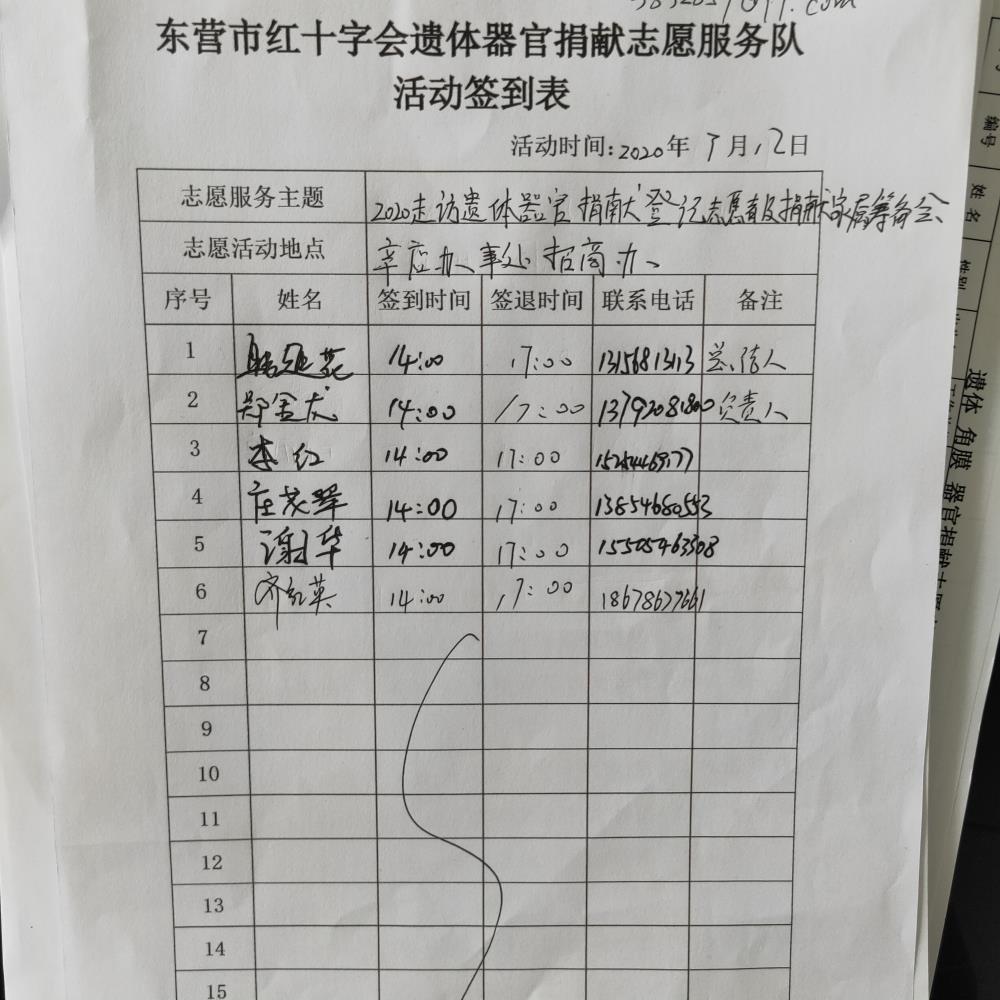 东营市红十字会遗体器官捐献志愿服务队
活动签到表
活动时间:2020年 7月12日
志愿服务主题 2020走访遗体器官捐献登记志愿者及捐献家属筹备会
志愿活动地点 辛店办事处招商办
序号 姓名 签到时间 签退时间 联系电话 备注
1 14:00 17:00 13156813113 总负责人
2 郑金龙 14:00 17:00 13792081800 负责人
3 李红 14:00 17:00 15254469177
4 庄茂翠 14:00 17:00 13854680553
5 谢华 14:00 17:00 15505463308
6 齐红英 14:00 17:00 18678677661
7
8
9
10
11
12
13
14
15
编号
姓名
性别
遗体 角膜 器官捐献